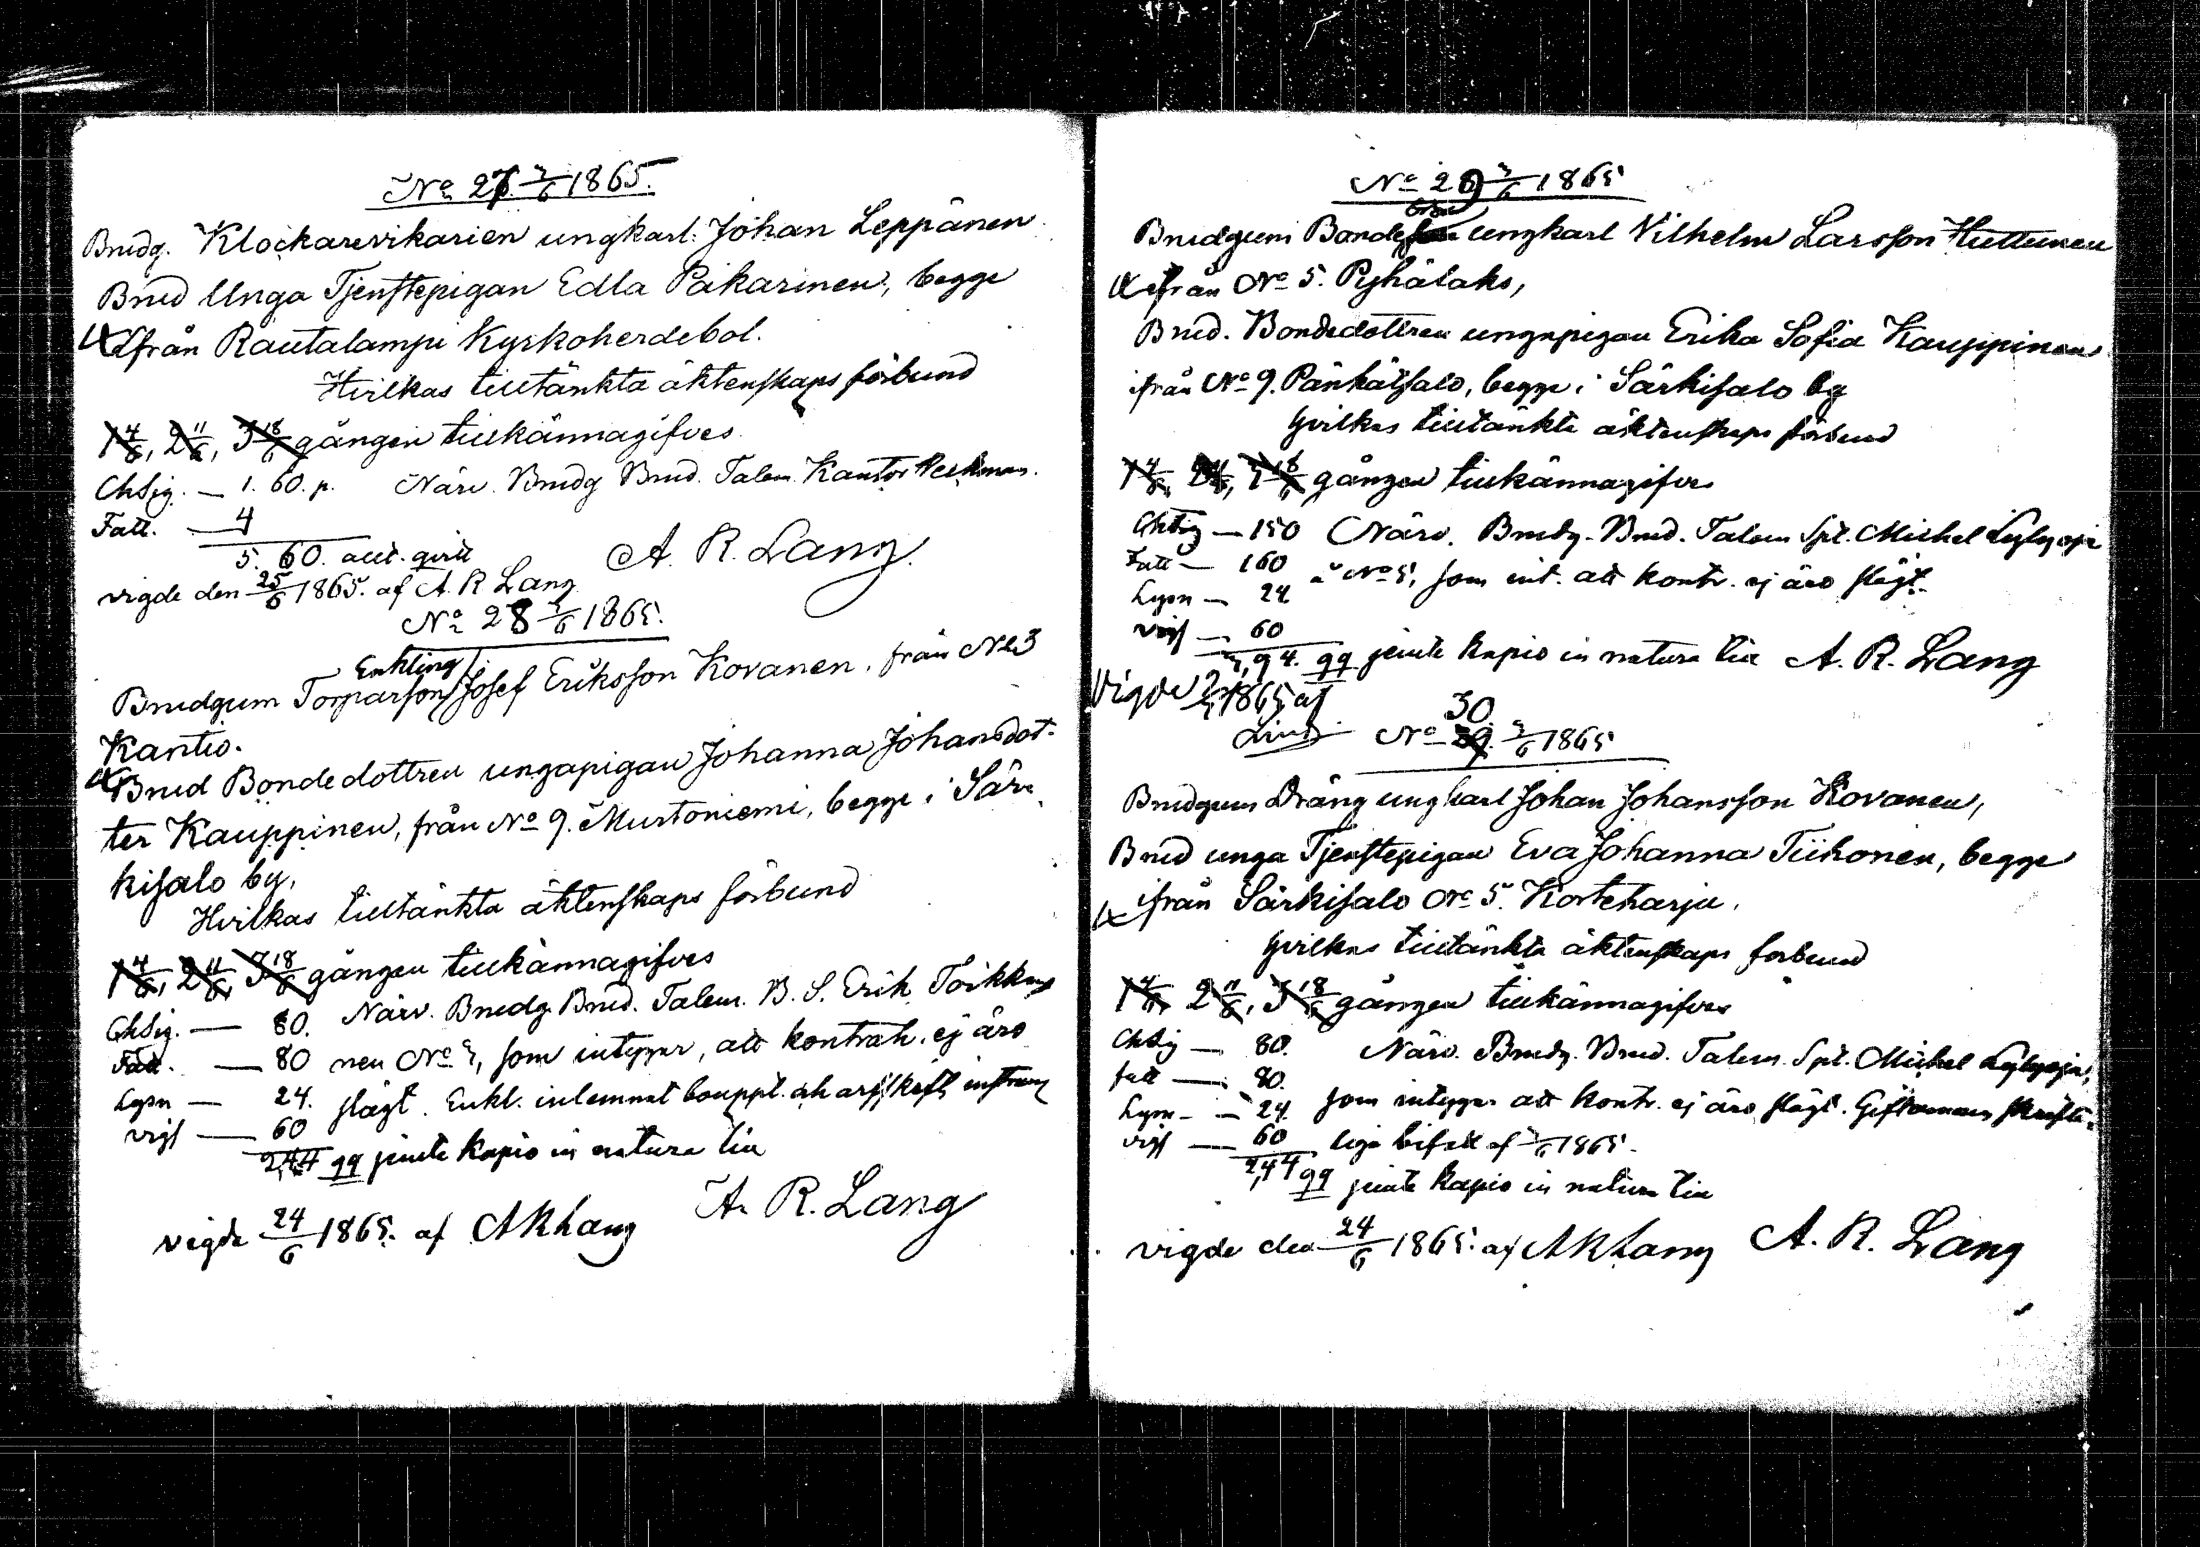 No 27. 3/6 1865.
Brudg. Klockarevikarien ungkarl. Johan Leppänen
Brud Unga Tjenstepigan Edla Pakarinen, begge
ifrån Rautalampi Kyrkoherdebol.
Hvilkas tilltänkta äktenskaps förbund
1 4/6, 2 11/6, 3 18/6 gången tillkännagifves.
Chsig. — 1. 60. p. Närv. Brudg Brud. Talem. Kantor
Fatt. — 4
5. 60. qvitt A. R. Lang.
vigde den 25/6 1865. af A. R Lang
No 28 3/6 1865.
Enkling
Brudgum Torparson Josef Eriksson Kovanen, från No 3
Kantio.
Brud Bondedottren ungapigan Johanna Johansdot-
ter Kauppinen, från No 9. Murtoniemi, begge i Sär-
kisalo by,
Hvilkas tilltänkta äktenskaps förbund
1 4/6, 2 11/6, 3 18/6 gången tillkännagifves
Chsig. — 80. Närv. Brudg. Brud. Talem. B. S. Erik Toikka-
Fatt. — 80 nen No 5, som intygar, att kontrah. ej äro
Lysn — 24. slägt. Enkl. inlemnat bouppt. och
vigs — 60
2,44 qq jemte kapio in natura till
A. R. Lang
vigde 24/6 1865. af ARLang
No 29 3/6 1865
Brudgum Bonde ungkarl Vilhelm Larsson Huttunen
ifrån No 5. Pyhälaks,
Brud. Bondedottren ungapigan Erika Sofia Kauppinen
ifrån No 9. Pänkäisalo, begge i Särkisalo by
hvilkas tilltänkta äktenskaps förbund
1 4/6, 2 11/6, 3 18/6 gången tillkännagifves
Chsig — 150 Närv. Brudg. Brud. Talem Spt. Michel Lylyoja
Fatt — 160 å No 5, som int. att kontr. ej äro slägt.
Lysn — 24
vigs — 60
3,94. qq jemte kapio in natura till A. R. Lang
Vigde 1865 af
No 30. 3/6 1865
Brudgum Dräng ungkarl Johan Johansson Kovanen,
Brud unga Tjenstepigan Eva Johanna Tiihonen, begge
ifrån Särkisalo No 5. Korteharju.
hvilkas tilltänkta äktenskaps forbund
1 4/6, 2 11/6, 3 18/6 gången tillkännagifves
Chsig — 80. Närv. Brudg. Brud. Talem. Spt. Michel Lylyoja,
fatt — 80. som intygar att kontr. ej äro slägt. Giftomans skrift-
Lysn — 24.
vigs — 60 liga bifall af 3/6 1865.
2,44 qq jemte kapio in natura till
vigde den 24/6 1865. af ARLang A. R. Lang